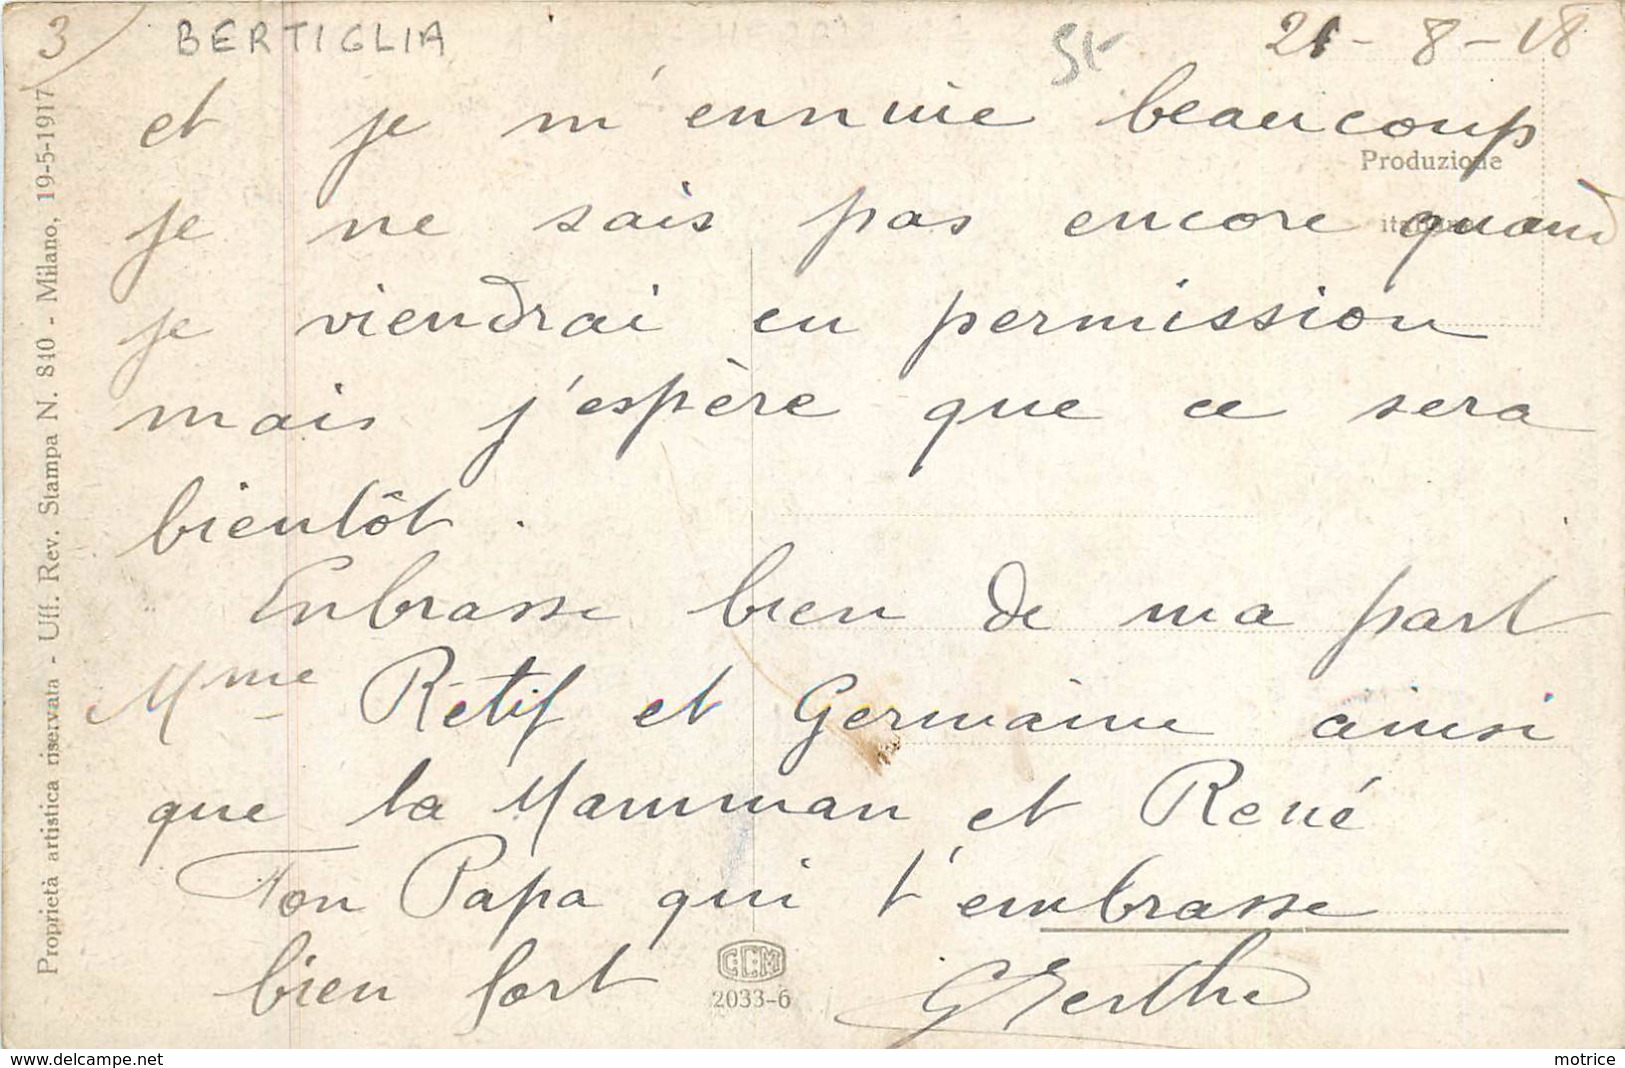 3 BERTIGLIA 21-8-18
et je m'ennuie beaucoup
Produzione
je ne sais pas encore quand
je viendrai en permission
mais j'espère que ce sera
bientôt.
Enbrasse bien de ma part
Mme Retif et Germaine ainsi
que la Mamman et René
Ton Papa qui t'embrasse
bien fort
CCM
2033-6
Proprietà artistica riservata - Uff. Rev. Stampa N. 840 - Milano, 19-5-1917
www.delcampe.net
motrice